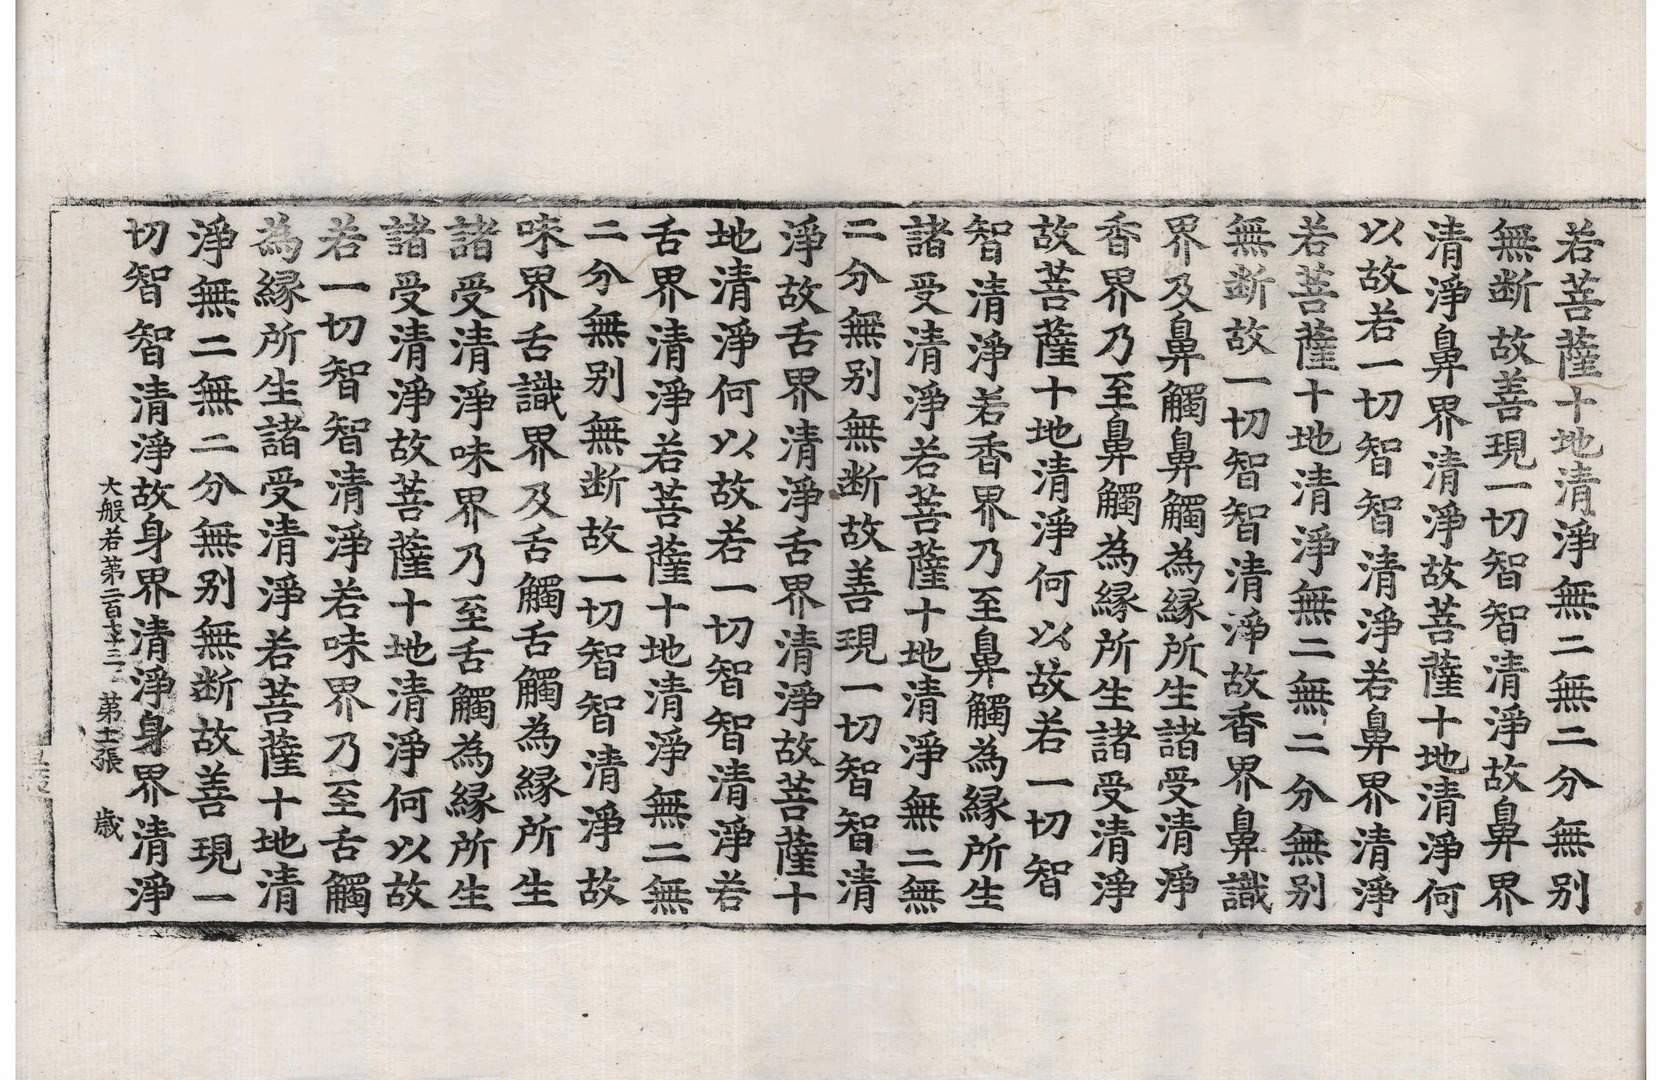 若菩薩十地清淨無二無二分無别
無断故善現一切智智清淨故鼻界
清淨鼻界清淨故菩薩十地清淨何
以故若一切智智清淨若鼻界清淨
若菩薩十地清淨無二無二分無别
無断故一切智智清淨故香界鼻識
界及鼻觸鼻觸為縁所生諸受清淨
香界乃至鼻觸為縁所生諸受清淨
故菩薩十地清淨何以故若一切智
智清淨若香界乃至鼻觸為縁所生
諸受清淨若菩薩十地清淨無二無
二分無别無断故善現一切智智清
淨故舌界清淨舌界清淨故菩薩十
地清淨何以故若一切智智清淨若
舌界清淨若菩薩十地清淨無二無
二分無别無断故一切智智清淨故
味界舌識界及舌觸舌觸為縁所生
諸受清淨味界乃至舌觸為縁所生
諸受清淨故菩薩十地清淨何以故
若一切智智清淨若味界乃至舌觸
為縁所生諸受清淨若菩薩十地清
淨無二無二分無别無断故善現一
切智智清淨故身界清淨身界清淨
大般若第二百七十三 第十一張 歳